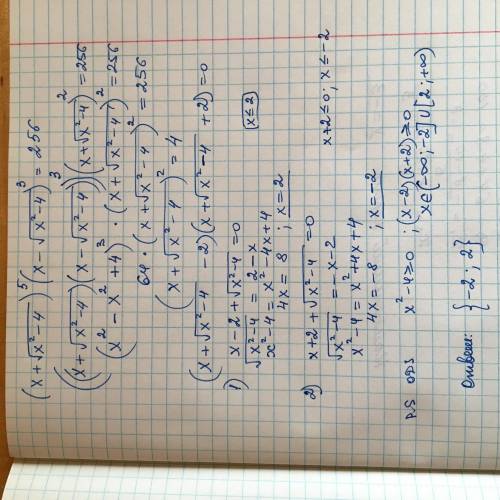 (x+√x²-4)⁵(x-√x²-4)³=256
((x+√x²-4)(x-√x²-4))³(x+√x²-4)²=256
(x²-x²+4)³·(x+√x²-4)²=256
64·(x+√x²-4)²=256
(x+√x²-4)²=4
(x+√x²-4 -2)(x+√x²-4 +2)=0
1) x-2+√x²-4=0
x≤2
√x²-4=2-x
x²-4=x²-4x+4
4x=8 ; x=2
2) x+2+√x²-4=0
x+2≤0; x≤-2
√x²-4=-x-2
x²-4=x²+4x+4
4x=-8 ; x=-2
P.S ОДЗ x²-4≥0 ; (x-2)(x+2)≥0
x∈(-∞;-2]∪[2;+∞)
Ответ: {-2;2}